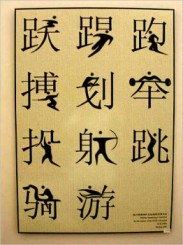 跃踢跑
搏划举
投射跳
骑游